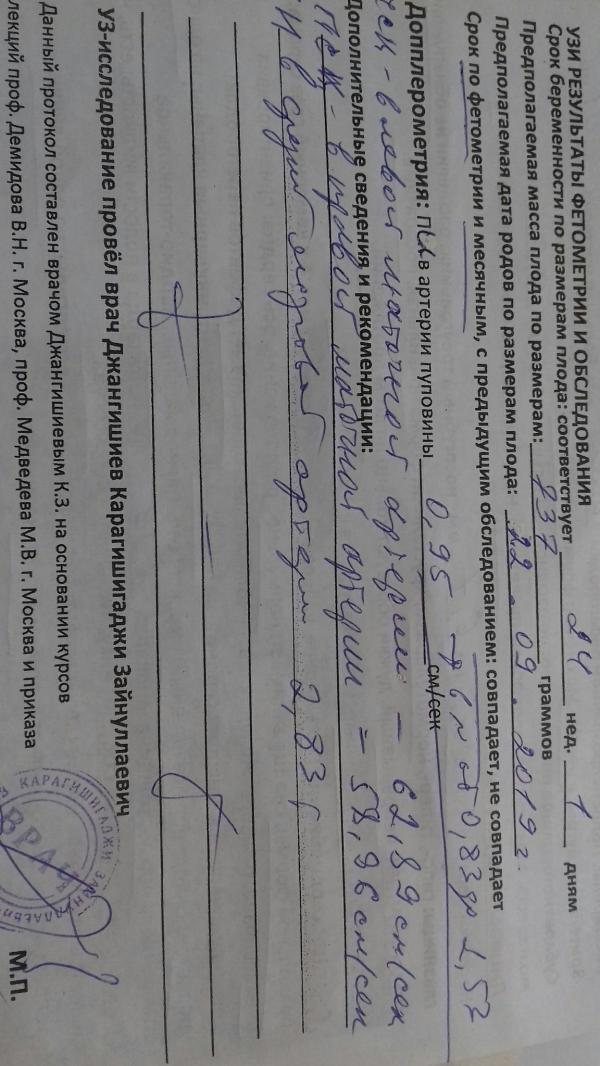 УЗИ РЕЗУЛЬТАТЫ ФЕТОМЕТРИИ И ОБСЛЕДОВАНИЯ
Срок беременности по размерам плода: соответствует 24 нед. 1 дням
Предполагаемая масса плода по размерам: 737 граммов
Предполагаемая дата родов по размерам плода: 22. 09. 2019 г.
Срок по фетометрии и месячным, с предыдущим обследованием: совпадает, не совпадает
Допплерометрия: ПИ в артерии пуповины 0,95 → в N от 0,83 до 1,57
см/сек
ЧСК - в левой маточной артерии - 62,89 см/сек
Дополнительные сведения и рекомендации:
в правой маточной артерии = 58,96 см/сек
в средней мозговой артерии 2,83
УЗ-исследование провёл врач Джангишиев Карагишигаджи Зайнуллаевич
Данный протокол составлен врачом Джангишиевым К.З. на основании курсов
лекций проф. Демидова В.Н. г. Москва, проф. Медведева М.В. г. Москва и приказа
КАРАГИШИГАДЖИ
ВРАЧ
М.П.